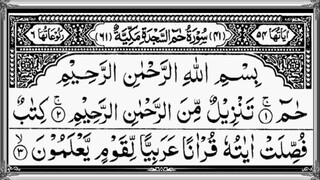 اٰیَاتُهَا ٥٤ (٤١) سُوْرَةُ حٰمٓ السَّجْدَةِ مَكِّیَّةٌ (٦١) رُكُوْعَاتُهَا ٦
بِسْمِ اللّٰهِ الرَّحْمٰنِ الرَّحِیْمِ
حٰمٓ ۚ﴿۱﴾ تَنْزِیْلٌ مِّنَ الرَّحْمٰنِ الرَّحِیْمِ ۚ﴿۲﴾ كِتٰبٌ
فُصِّلَتْ اٰیٰتُهٗ قُرْاٰنًا عَرَبِیًّا لِّقَوْمٍ یَّعْلَمُوْنَ ۙ﴿۳﴾